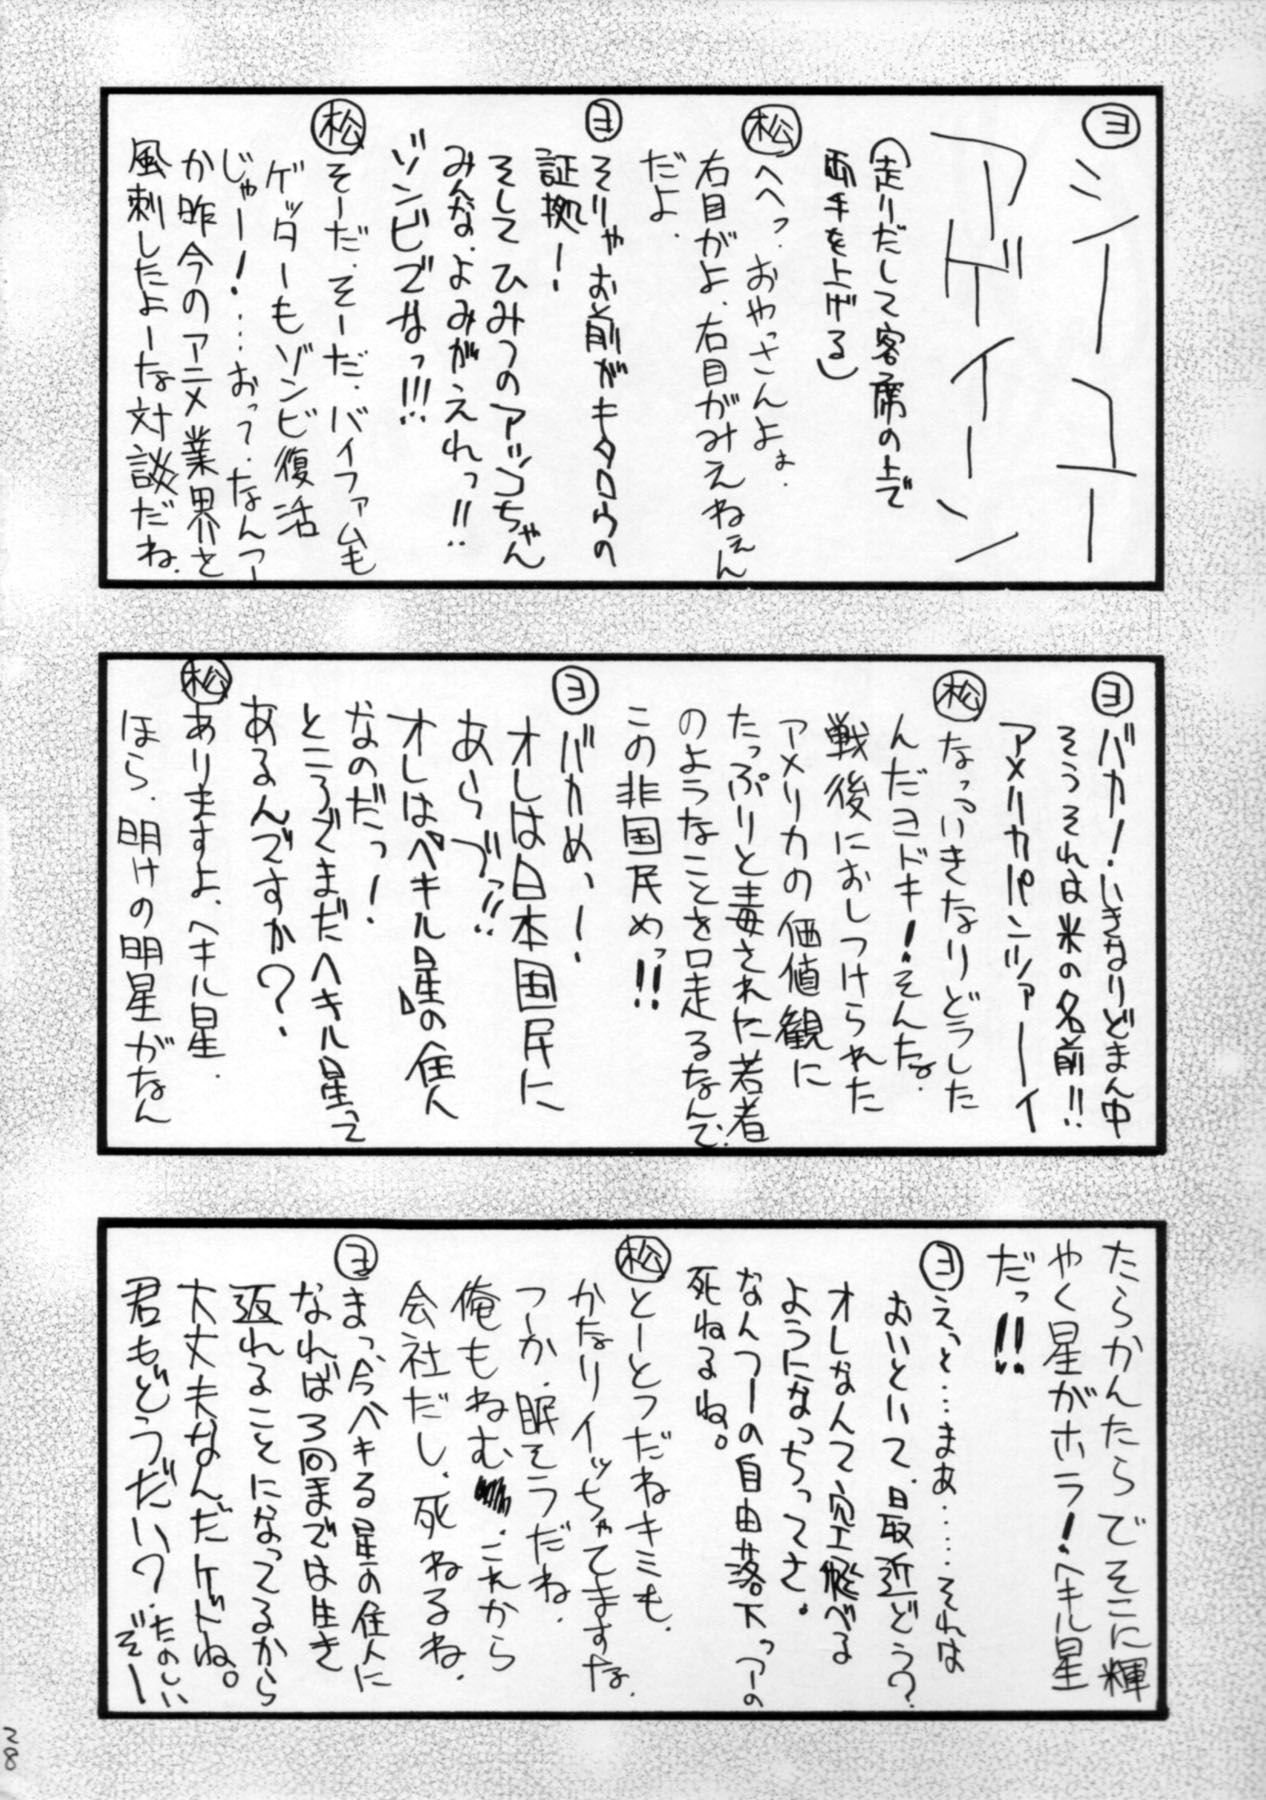 ヨ シーユー
アゲイーン
(走りだして客席の上で
両手を上げる)
松 へへっ.おやっさんよぉ.
右目がよ、右目がみえねぇん
だよ.
ヨ そりゃお前がキタロウの
証拠ー!
そして ひみつのアッコちゃん
みんな、よみがえれっ!!
ゾンビでなっ!!!
松 そーだ.そーだ.バイファムも
ゲッターもゾンビ復活
じゃー!…おって.なんつー
か昨今のアニメ業界を
風刺したよーな対談だね.
ヨ バカ!いきなりどまん中
そうそれは米の名前!!
アメリカパンツァーイ
松 なっいきなりどうした
んだヨドキ!そんな.
戦後におしつけられた
アメリカの価値観に
たっぷりと毒された若者
のようなことを口走るなんて.
この非国民めっ!!
ヨ バカめっ!
オレは日本国民に
あらずっ!!
オレは「ペキル星」の住人
なのだっ!
ところでまだヘキル星って
あるんですか?
松 ありますよ、ヘキル星.
ほら、明けの明星がなん
たらかんたらでそこに輝
やく星がホラ!ヘキル星
だっ!!
ヨ えっと…まあ……それは
おいといて、最近どう?
オレなんて空飛べる
ようになっちってさ。
なんつーの自由落下っつーの
死ねるね。
松 とーとつだねキミも.
かなりイッちゃてますな.
つーか、眠そうだね.
俺もねむ.これから
会社だし、死ねるね.
ヨ まっ、今ペキる星の住人に
なれば3回までは生き
返れることになってるから
大丈夫なんだケドね。
君もどうだい?たのしい
ぞー
28